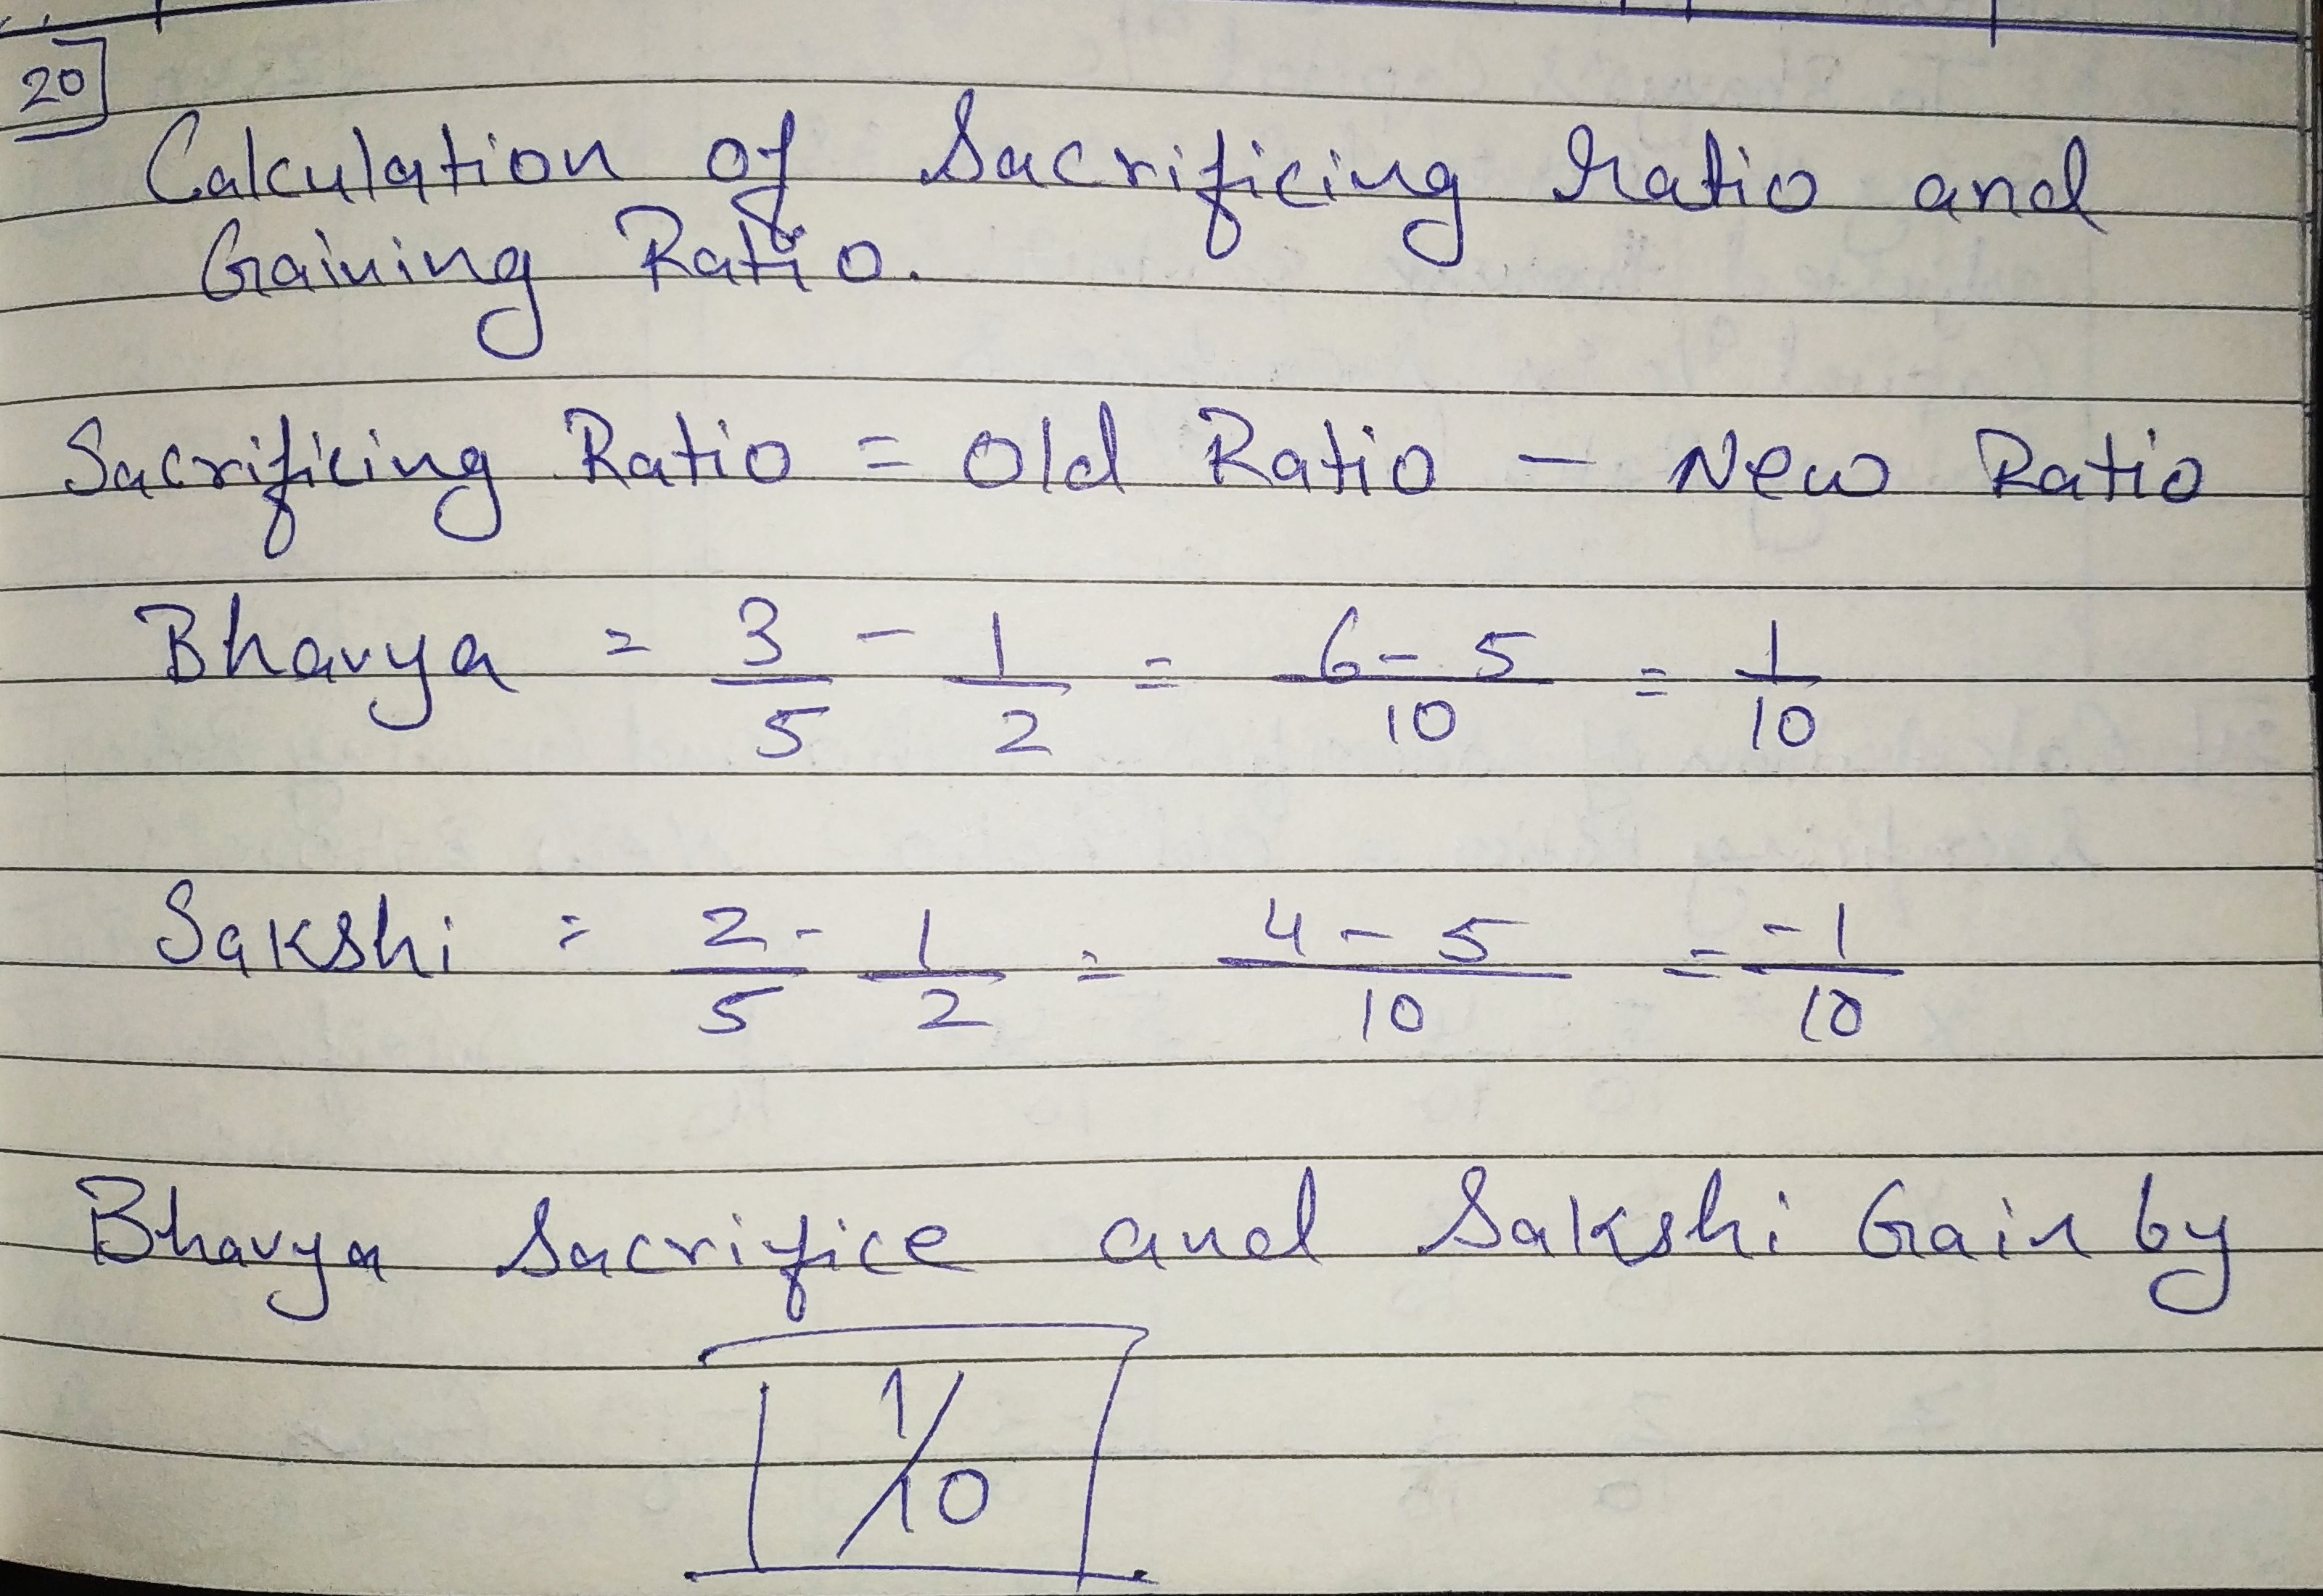 20
Calculation of Sacrificing Ratio and
Gaining Ratio.
Sacrificing Ratio = Old Ratio - New Ratio
Bhavya = 3/5 - 1/2 = 6-5/10 = 1/10
Sakshi = 2/5 - 1/2 = 4-5/10 = -1/10
Bhavya Sacrifice and Sakshi Gain by
1/10